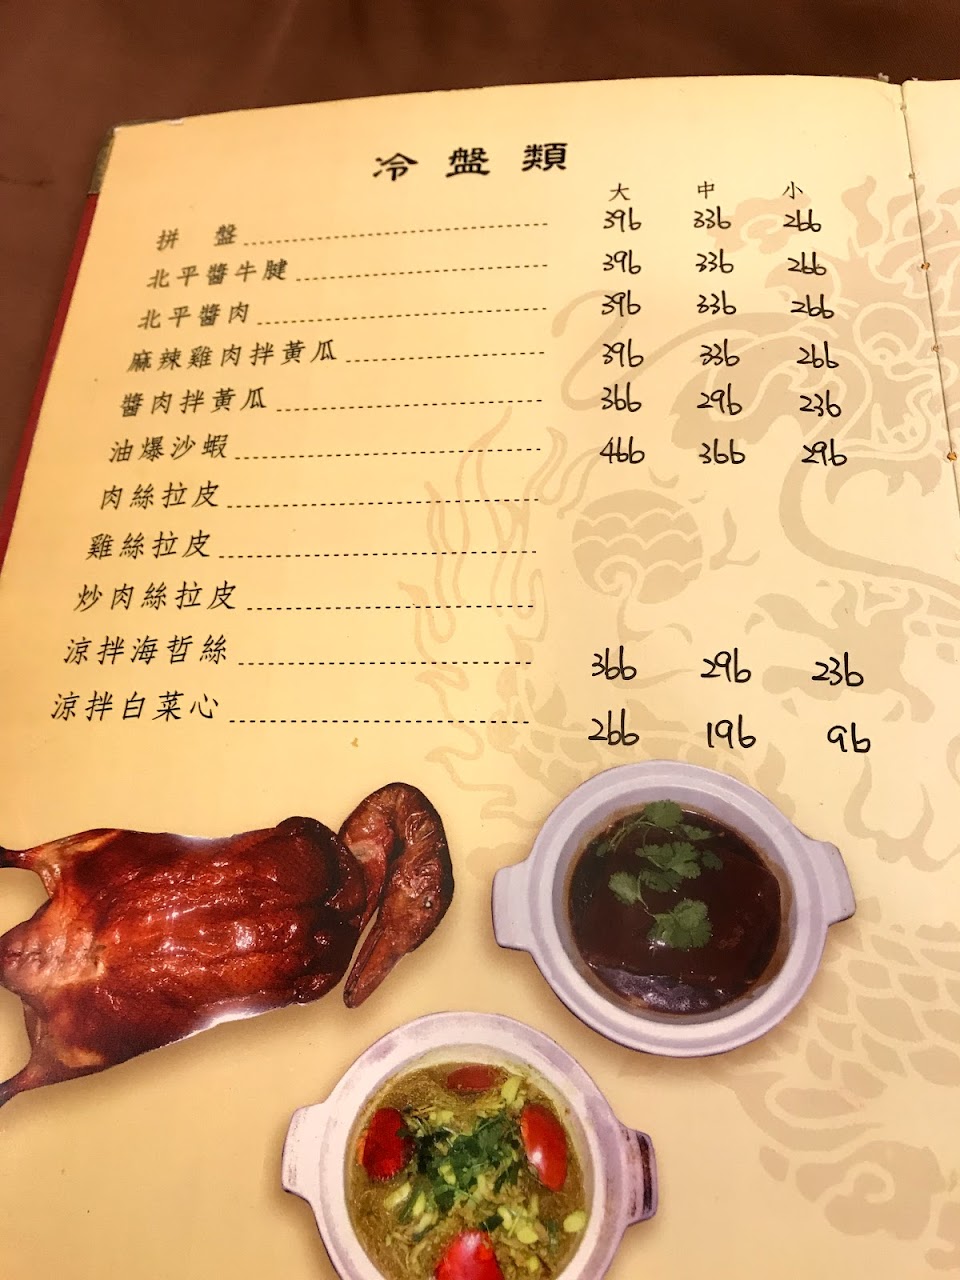 冷盤類
大 中 小
拼 盤 396 336 266
北平醬牛腱 396 336 266
北平醬肉 396 336 266
麻辣雞肉拌黃瓜 396 336 266
醬肉拌黃瓜 366 296 236
油爆沙蝦 466 366 296
肉絲拉皮
雞絲拉皮
炒肉絲拉皮
涼拌海哲絲 366 296 236
涼拌白菜心 266 196 96